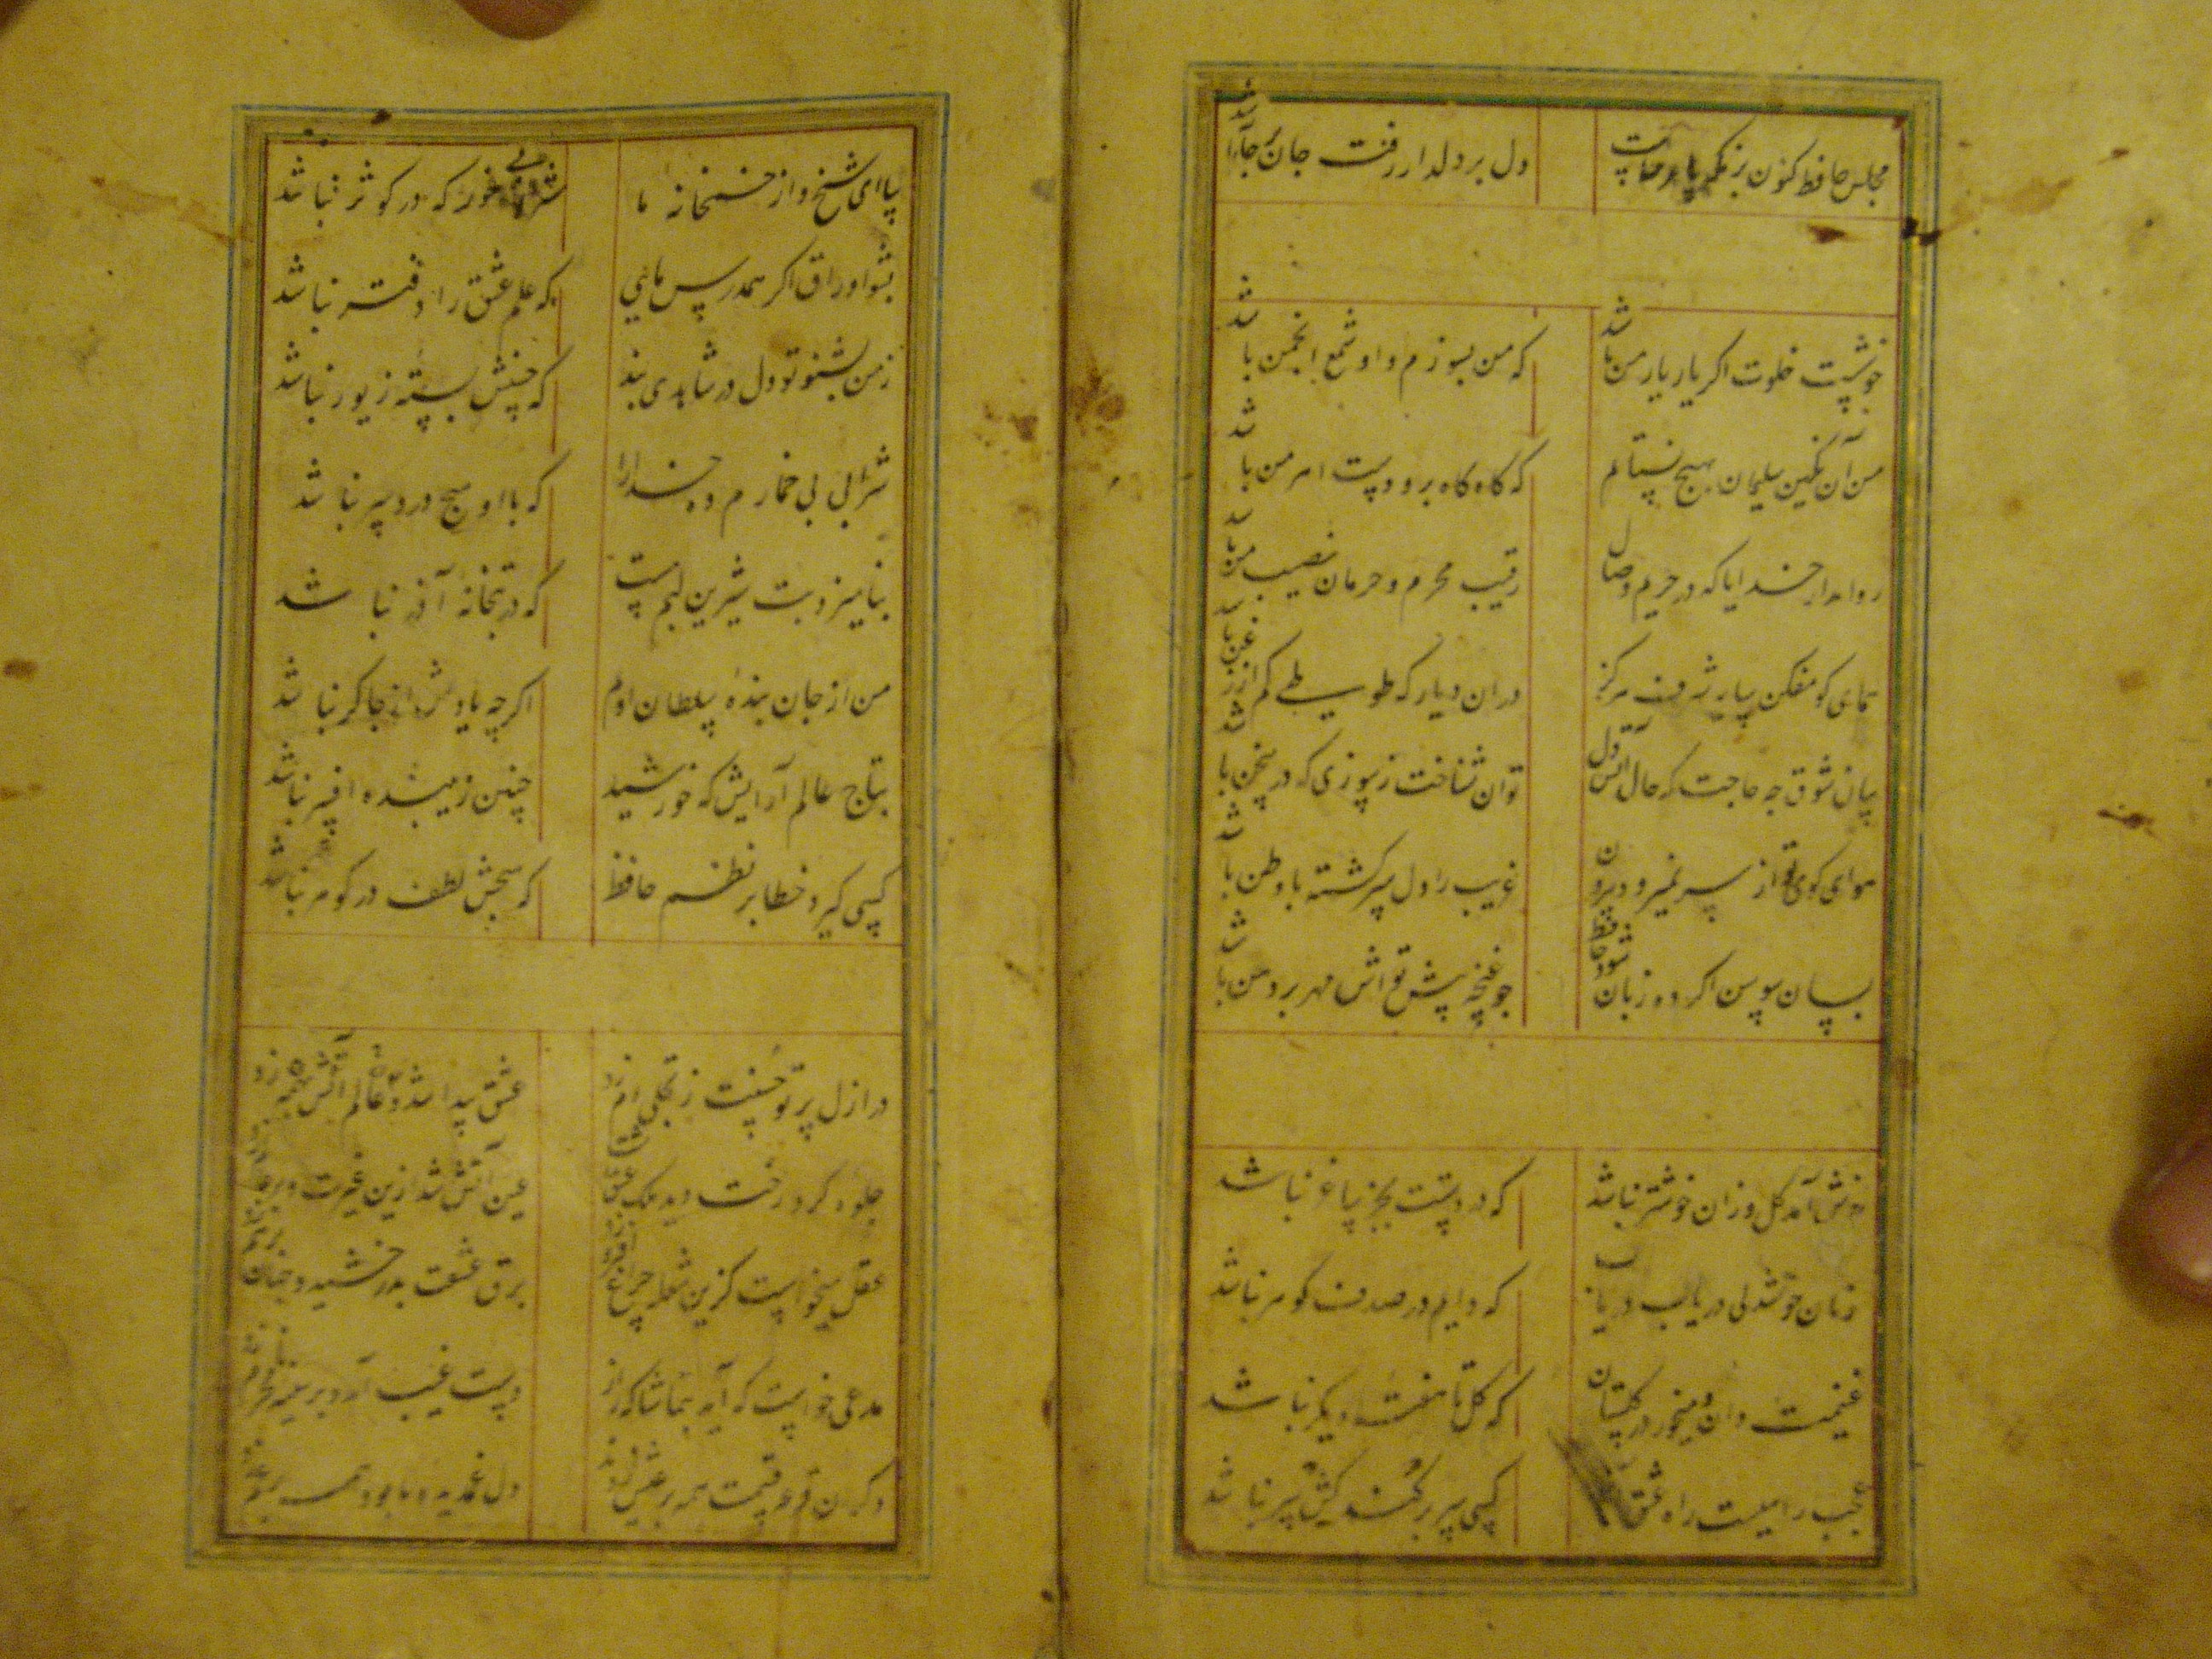 مجلس حافظ کنون بزمگه پادشاست دل بر دلدار رفت جان بر جانانه شد
خوشست خلوت اکر یار یار من باشد که من بسوزم و او شمع انجمن باشد
من آن نکین سلیمان بهیچ نستانم که کاه کاه برو دست اهرمن باشد
روا مدار خدایا که در حریم وصال رقیب محرم و حرمان نصیب من باشد
همای کو مفکن سایه شرف هرکز دران دیار که طوطی کم از زغن باشد
بیان شوق چه حاجت که حال آتش دل توان شناخت ز سوزی که در سخن باشد
هوای کوی تو از سر نمیرود بیرون غریب را دل سرکشته با وطن باشد
بسان سوسن اکر ده زبان شود حافظ چو غنچه پیش تواش مهر بر دهن باشد
خوش آمد کل وزان خوشتر نباشد که در دستت بجز ساغر نباشد
زمان خوشدلی دریاب دریاب که دایم در صدف کوهر نباشد
غنیمت دان و میخور در کلستان که کل تا هفته دیکر نباشد
عجب راهیست راه عشق کسی سر بر کند کش سر نباشد
بیا ای شیخ و از خمخانه ما شرابی خور که در کوثر نباشد
بشو اوراق اکر همدرس مایی که علم عشق را دفتر نباشد
ز من بشنو تو دل در شاهدی بند که حسنش بسته زیور نباشد
شرابی بی خمارم ده خدا را که با او هیچ درد سر نباشد
بنامیزد بت شیرین لبم هست که در بتخانه آذر نباشد
من از جان بنده سلطان اویم اکر چه یادش از چاکر نباشد
بتاج عالم آرایش که خورشید چنین زیبنده افسر نباشد
کسی کیرد خطا بر نظم حافظ که هیچش لطف در کوهر نباشد
در ازل پرتو حسنت ز تجلی دم زد عشق پیدا شد و آتش بهمه عالم زد
جلوه کرد رخت دید ملک عشق نداشت عین آتش شد ازین غیرت و بر آدم زد
عقل میخواست کزین شعله چراغ افروزد برق غیرت بدرخشید و جهان برهم زد
مدعی خواست که آید بتماشاکه راز دست غیب آمد و بر سینه نامحرم زد
دکران قرعه قسمت همه بر عیش زدند دل غمدیده ما بود که هم بر غم زد